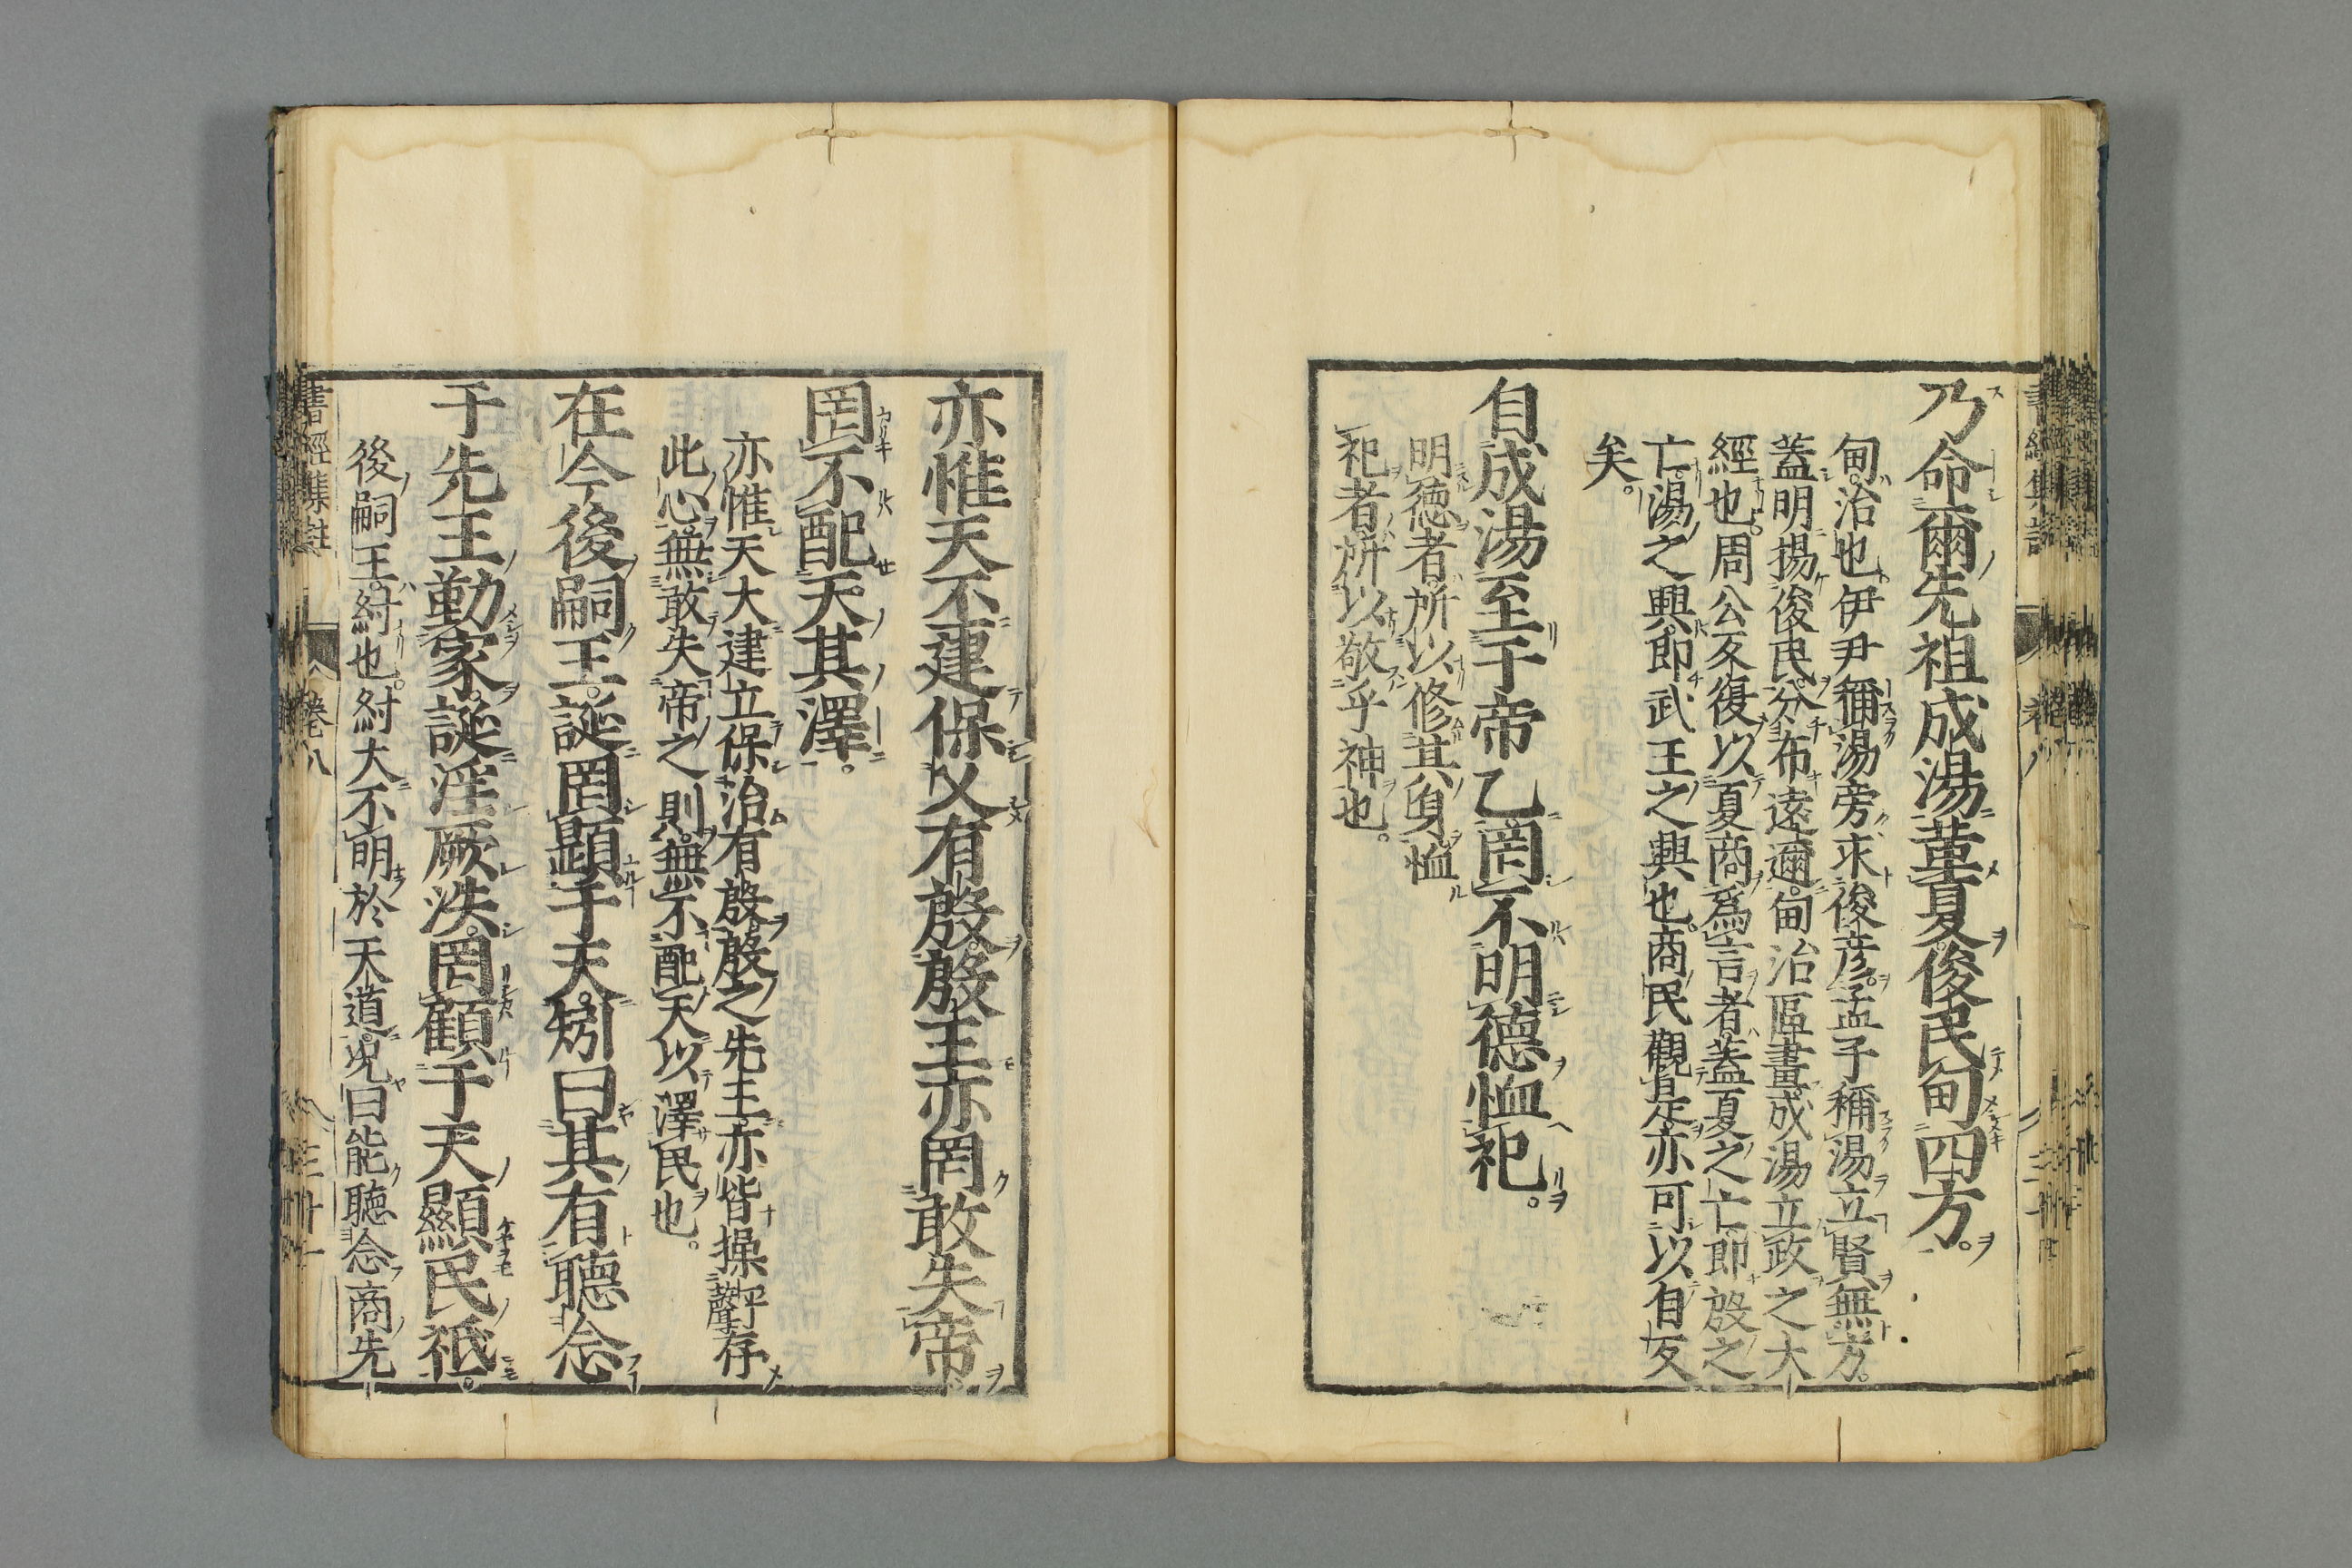 乃命爾先祖成湯革夏俊民甸四方。
甸。治也。伊尹稱湯旁求俊彦。孟子稱湯立賢無方。
蓋明揚俊民。分布遠邇。甸治區畫。成湯立政之大
經也。周公反復以夏商爲言者。蓋夏之亡。即殷之
亡。湯之興。即武王之興也。商民觀是亦可以自反
矣。
自成湯至于帝乙罔不明德恤祀。
明德者。所以修其身。恤
祀者所以敬乎神也。
亦惟天丕建保乂有殷。殷王亦罔敢失帝。
罔不配天其澤。
亦惟天大建立保治有殷。殷之先王。亦皆操存
此心。無敢失帝之則。無不配天以澤民也。
在今後嗣王。誕罔顯于天。矧曰其有聽念
于先王勤家。誕淫厥泆。罔顧于天顯民祗。
後嗣王。紂也。紂大不明於天道。況曰能聽念商先
書經集註 卷八 三十一